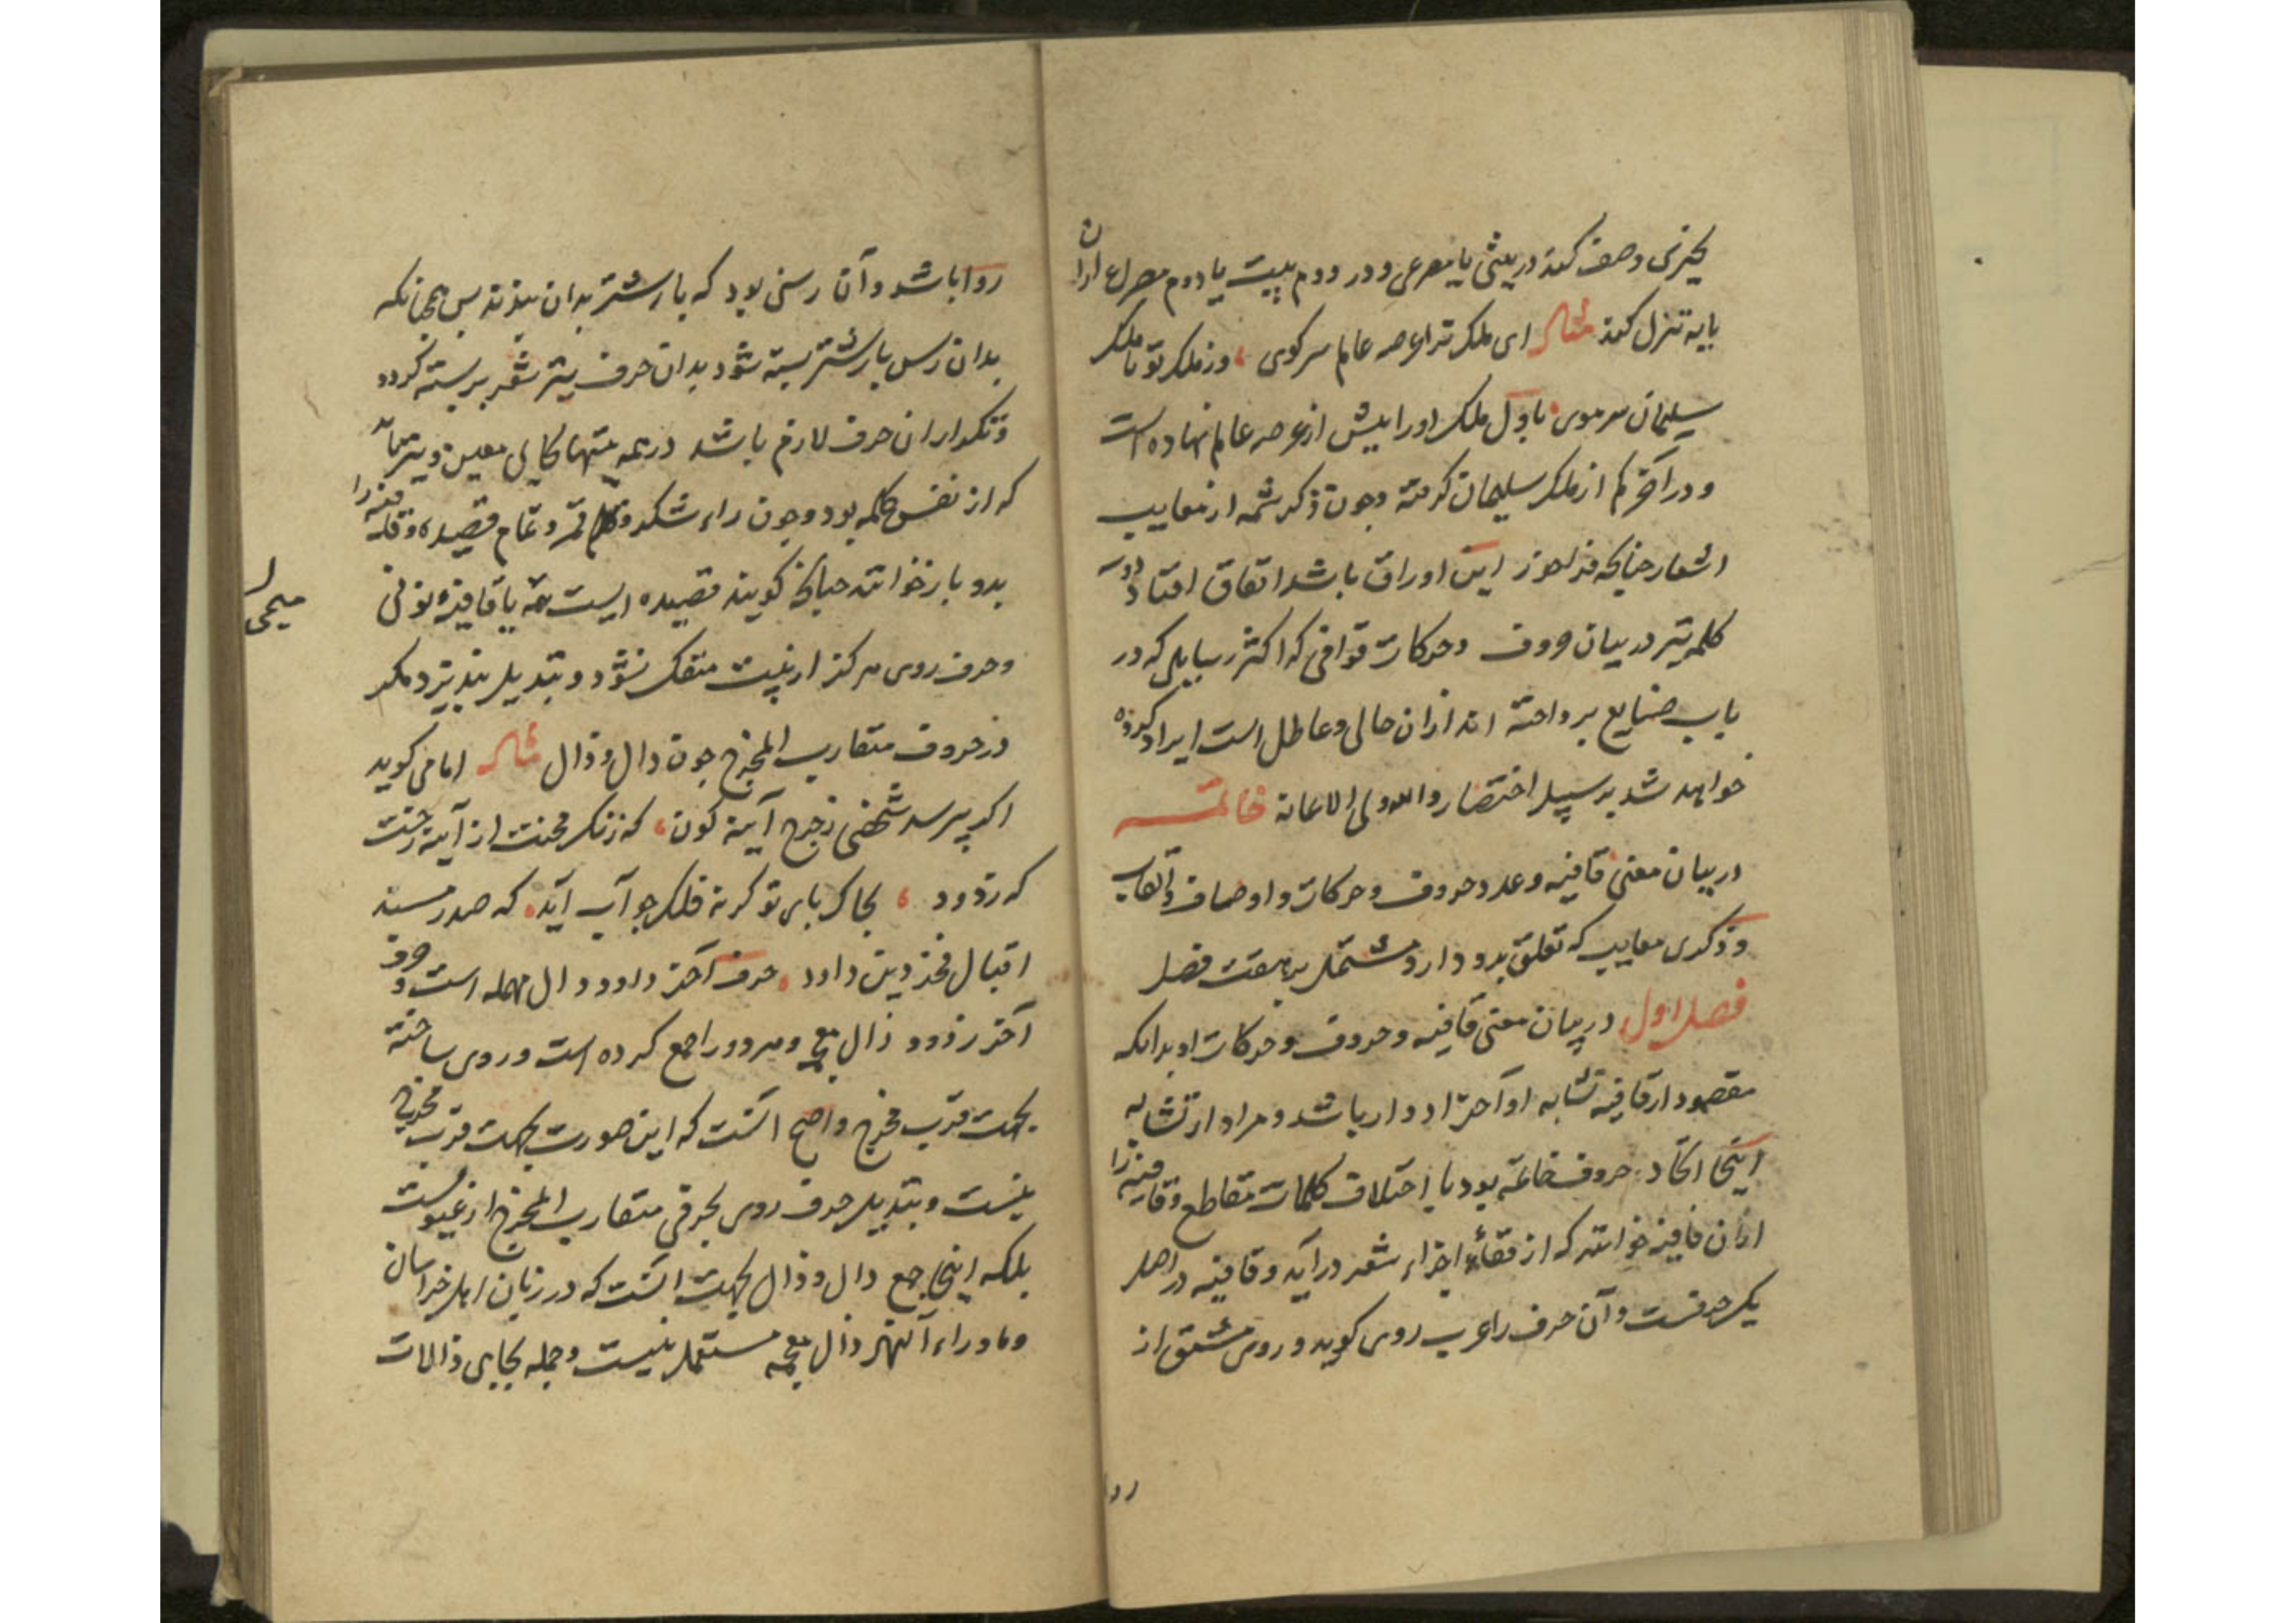 بچیزی وصف کند در بیتی یا مصرعی و در دوم بیت یا دوم مصراع ازان
پایه تنزل کند مثال ای ملک ترا عرصه عالم سرکوی وز ملک تو تا ملک
سلیمان سر موی باول ملک او را بیش از عرصه عالم نهاده است
و در آخر کم از ملک سلیمان کرفته و چون ذکر شمه از معایب
اشعار چنانچه فراخور این اوراق باشد اتفاق افتاد دو سه
کلمه نیز در بیان حروف و حرکات قوافی که اکثر رسایلی که در
باب صنایع پرداخته اند ازان خالی و عاطل است ایراد کرده
خواهد شد بر سبیل اختصار والله ولی الاعانه خاتمه
در بیان معنی قافیه و عدد حروف و حرکات و اوصاف و القاب
و ذکری معایب که تعلق بدو دارد مشتمل بر هفت فصل
فصل اول در بیان معنی قافیه و حروف و حرکات او بدانکه
مقصود از قافیه تشابه او آخر ادوار باشد و مراد از تشابه
اینجا اتحاد حروف خاتمه بود با اختلاف کلمات مقاطع و قافیه را
ازان قافیه خوانند که از قفاء اجزاء شعر درآید و قافیه در اصل
یک حرفست و آن حرف را عرب روی کوید و روی مشتق از
روا
روا باشد و آن رسنی بود که بار شتر بدان بندند پس چنانکه
بدان رسن بار شتر بسته شود بدان حرف نیز شعر بر بسته کردد
و تکرار ان حرف لازم باشد در همه بیتها بجای معین و بیتها
که از نفس کلمه بود و چون راء شکر و قمر و تمام قصیده و قافیه را
بدو باز خوانند چنانکه کویند قصیده ایست یا قافیه نونی
میمی
و حرف روی هرکز از بیت منفک نشود و تبدیل نپذیرد مکر
در حروف متقارب المخرج چون دال و ذال مثال امامی کوید
اکر بپرسد شخصی ز چرخ آینه کون که زنک محنت از آینه رخت
که زدود بخاک پای تو کر نه فلک جواب آید که صدر مسند
اقبال فخر دین داود حرف آخر داود دال مهمله است و حرف
آخر زدود ذال معجمه و هر دو را جمع کرده است و روی ساخته
بجهت قرب مخرج و اصح انست که این صورت بجهت قرب مخرج
نیست و تبدیل حرف روی بحرفی متقارب المخرج از عیوبست
بلکه اینجا جمع دال و ذال بجهت انست که در زبان اهل خراسان
و ماوراء النهر ذال معجمه مستعمل نیست و جمله بجای ذالات